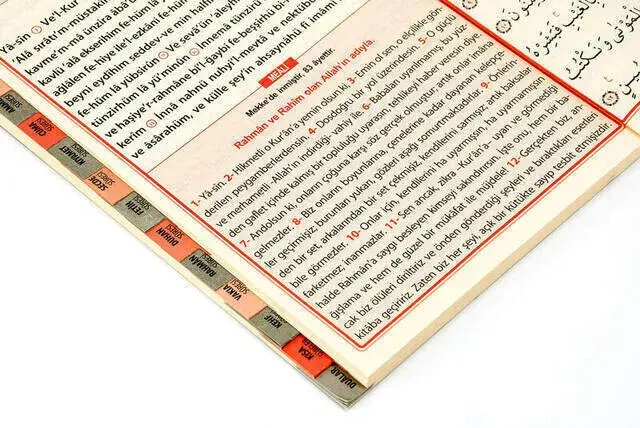 Yâ-sîn Ve'l-Kur
'Alâ sırâti'm-müstakîm
kavme'm-mâ ünzira âbâ
kavlü 'alâ ekserihim fe-hüm lâ
ağlâlen fe-hiye ile'l-ezkâni
beyni eydîhim seddev-ve min
fe-hüm lâ yübsirûn Ve sevâ'ün 'aleyhi
tünzirhüm lâ yü'minûn nemâ tünziru
ve haşiye'r-rahmâne bi'l-ğaybi fe-beşşirhü bi
kerîm İnnâ nahnü nuhyi'l-mevtâ ve nektübü
ve âsârahüm, ve külle şey'in ahsaynâhü fî imâmi
MEALİ
Mekke'de inmiştir. 83 âyettir.
Rahmân ve Rahîm olan Allah'ın adıyla.
1- Yâ-sîn, 2- Hikmetli Kur'ân'a yemin olsun ki, 3- emin ol sen, o elçilikle gön-
derilen peygamberlerdensin. 4- Dosdoğru bir yol üzerindesin. 5- O güçlü
ve merhametli -Allah'ın indirdiği- vahiy ile. 6- babaları uyarılmamış, bu yüz-
den gaflet içinde kalmış bir topluluğu uyarasın, tehlikeyi haber veresin diye.
7- Andolsun ki, onların çoğuna karşı söz gerçek olmuştur; artık onlar imâna
gelmezler. 8- Biz onların boyunlarına, çenelerine kadar dayanan kelepçe-
ler geçirmişiz; burunları yukarı, gözleri aşağı somurtmaktadırlar. 9- Önlerin-
den bir set, arkalarından bir set çekmişiz, kendilerini sarmışız artık baksalar
bile görmezler. 10- Onlar için, kendilerini ha uyarmışsın, ha uyarmamışsın
farketmez; inanmazlar. 11- Sen ancak, zikra -Kur'ân'a- uyan ve görmediği
halde Rahmân'a saygı besleyen kimseyi sakındırırsın. İşte onu, hem bir ba-
ğışlama ve hem de güzel bir mükâfat ile müjdele. 12- Gerçekten biz, an-
cak biz ölüleri diriltiriz ve önden gönderdiği şeyleri ve bıraktıkları eserleri
kitâba geçiririz. Zaten biz her şeyi, açık bir kütükte sayıp tesbit etmişizdir.
AMME
CUMA
SÛRESİ
KIYAMET
SECDE
SÛRESİ
FETİH
SÛRESİ
DUHAN
SÛRESİ
RAHMÂN
SÛRESİ
VAKIA
SÛRESİ
KEHF
KISA
SÛRELER
DUÂLAR